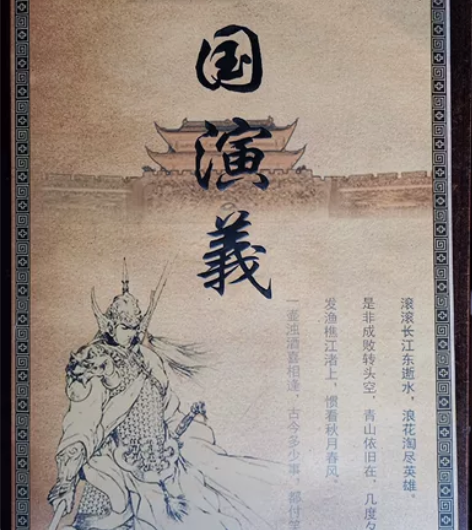 国演義
滚滚长江东逝水，浪花淘尽英雄。
是非成败转头空，青山依旧在，几度夕
发渔樵江渚上，惯看秋月春风。
一壶浊酒喜相逢，古今多少事，都付笑